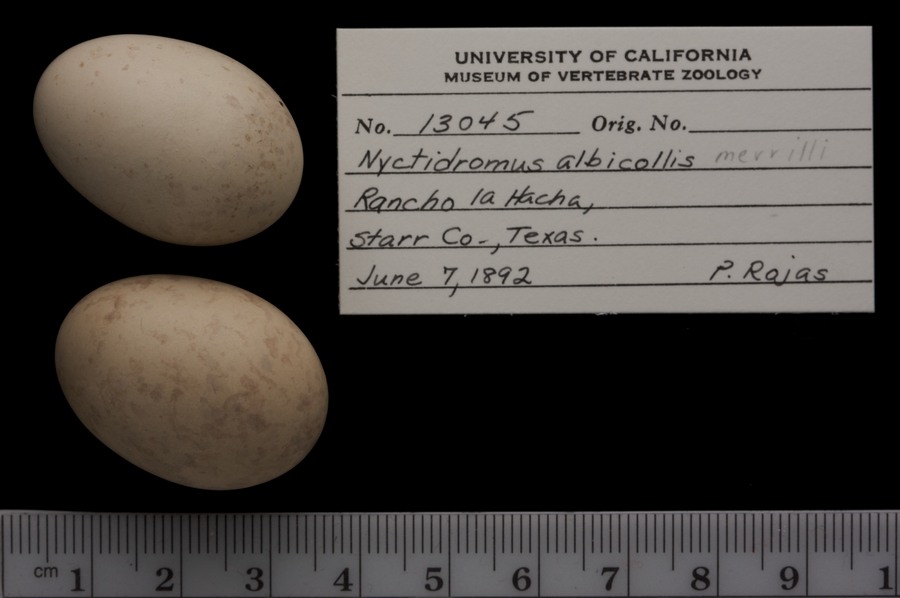 UNIVERSITY OF CALIFORNIA
MUSEUM OF VERTEBRATE ZOOLOGY
No. 13045 Orig. No.
Nyctidromus albicollis merrilli
Rancho la Hacha,
Starr Co., Texas.
June 7, 1892 P. Rojas
cm 1 2 3 4 5 6 7 8 9 1